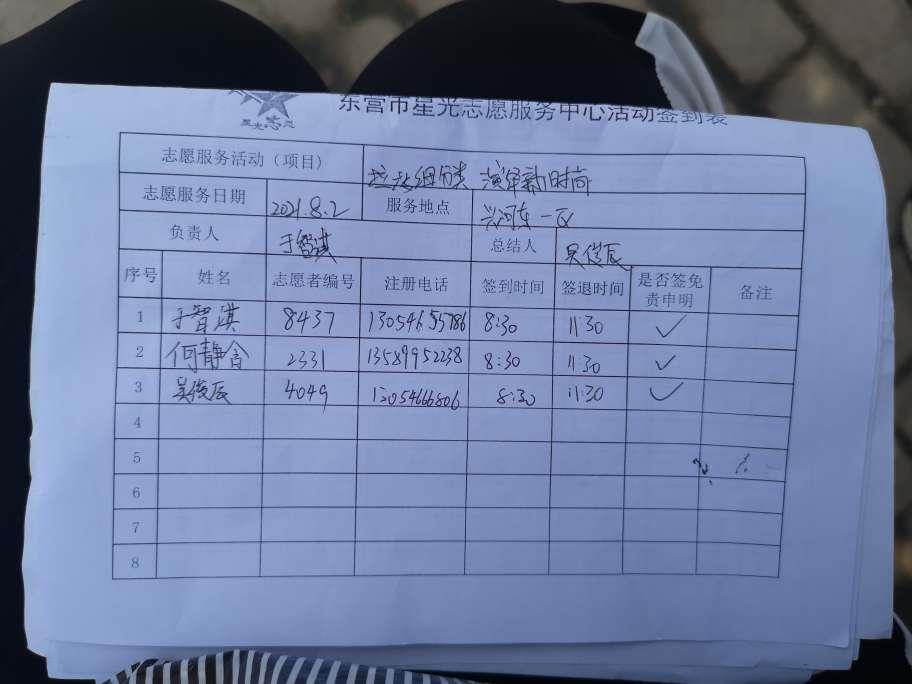 星光志愿
东营市星光志愿服务中心活动签到表
志愿服务活动（项目） 垃圾细分类 演绎新时尚
志愿服务日期 2021.8.2 服务地点 兴河东一区
负责人 于智淇 总结人 吴俊辰
序号 姓名 志愿者编号 注册电话 签到时间 签退时间 是否签免责申明 备注
1 于智淇 8437 13054655786 8:30 11:30 ✓
2 何静含 2331 13589952238 8:30 11:30 ✓
3 吴俊辰 4049 12054666806 8:30 11:30 ✓
4
5
6
7
8